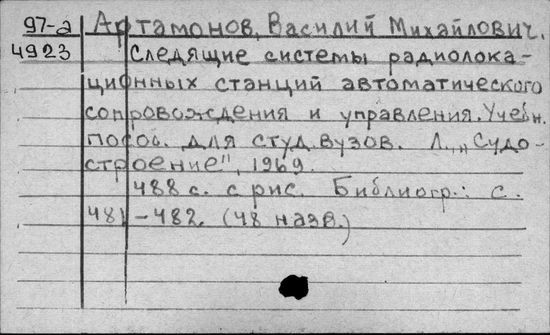 97-2 Артамонов, Василий Михайлович.
4923 Следящие системы радиолока-
ционных станций автоматического
сопровождения и управления. Учебн.
пособ. для студ. вузов. Л., „Судо-
строение", 1969.
488 с. с рис. Библиогр.: с.
481-482. (48 назв.)